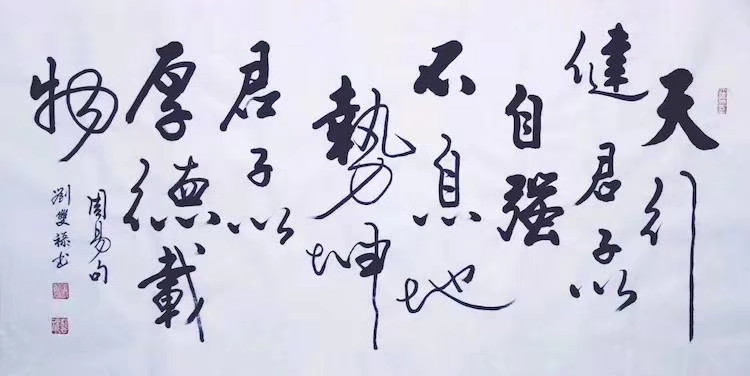 天行
健君子以
自强
不息地
勢坤
君子以
厚德載
物
周易句
劉雙书